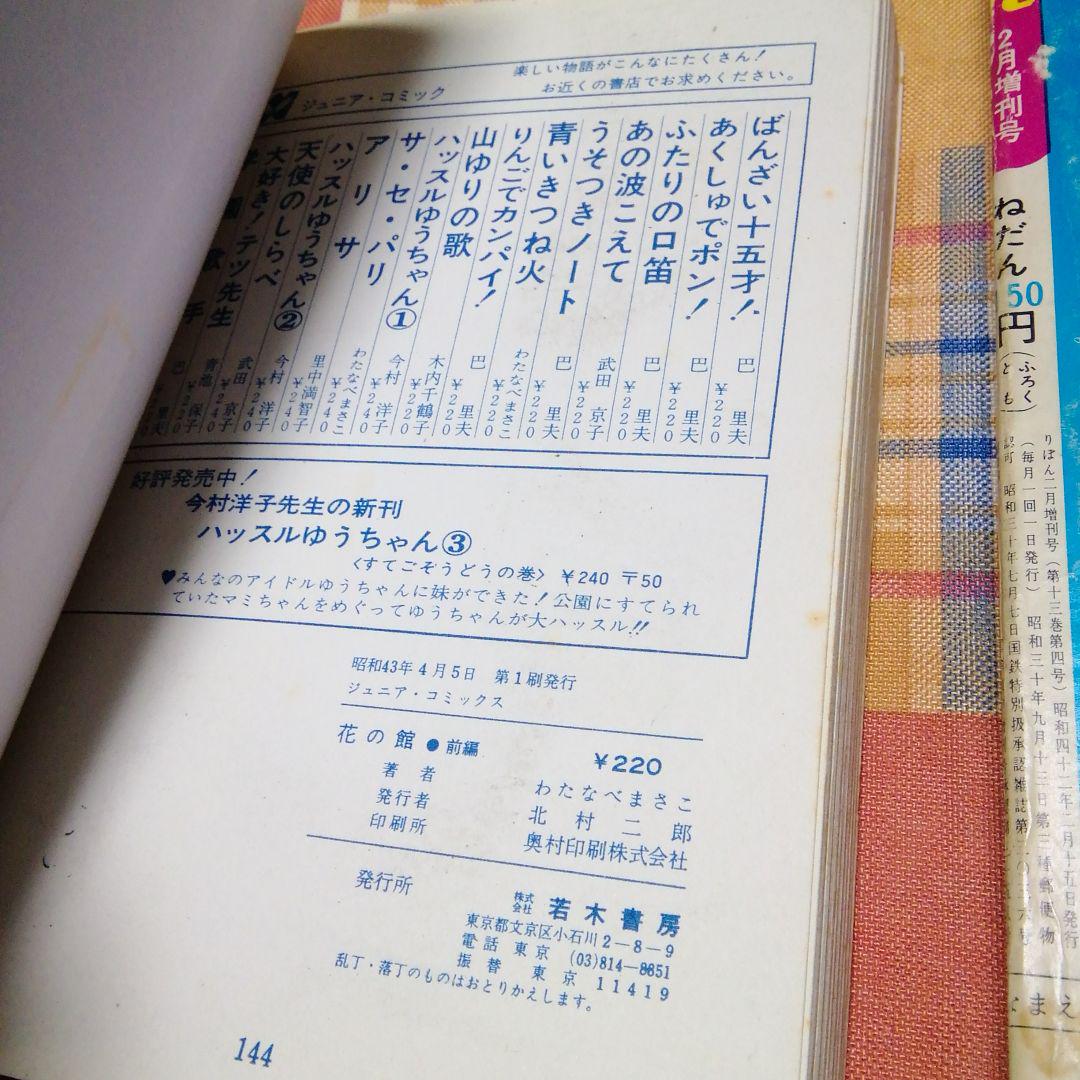 楽しい物語がこんなにたくさん!
お近くの書店でお求めください。
ジュニア・コミック
ばんざい十五才! 巴 里夫 ¥220
あくしゅでポン! 巴 里夫 ¥220
ふたりの口笛 巴 里夫 ¥220
あの波こえて 巴 里夫 ¥220
うそつきノート 武田 京子 ¥220
青いきつね火 巴 里夫 ¥220
りんごでカンパイ! わたなべまさこ ¥220
山ゆりの歌 巴 里夫 ¥220
ハッスルゆうちゃん① 木内千鶴子 ¥220
サ・セ・パリ 今村 洋子 ¥220
アリサ わたなべまさこ ¥240
ハッスルゆうちゃん② 里中満智子 ¥240
天使のしらべ 今村 洋子 ¥240
大好き!テツ先生 武田 京子 ¥240
歌手 青池 保子 ¥220
巴 里夫
好評発売中!
今村洋子先生の新刊
ハッスルゆうちゃん③
〈すてごそうどうの巻〉 ¥240 〒50
♥みんなのアイドルゆうちゃんに妹ができた!公園にすてられ
ていたマミちゃんをめぐってゆうちゃんが大ハッスル!!
昭和43年4月5日 第1刷発行
ジュニア・コミックス
花の館●前編 ¥220
著者 わたなべまさこ
発行者 北村二郎
印刷所 奥村印刷株式会社
発行所 株式会社 若木書房
東京都文京区小石川2-8-9
電話 東京 (03)814-8851
振替 東京 11419
乱丁・落丁のものはおとりかえします。
144
2月増刊号
ねだん
50円
(ふろくとも)
りぼん二月増刊号(第十三巻第四号)昭和四十二年二月十五日発行
(毎月一回一日発行) 昭和三十年九月十三日第三種郵便物
認可 昭和三十年七月七日国鉄特別扱承認雑誌第
なまえ